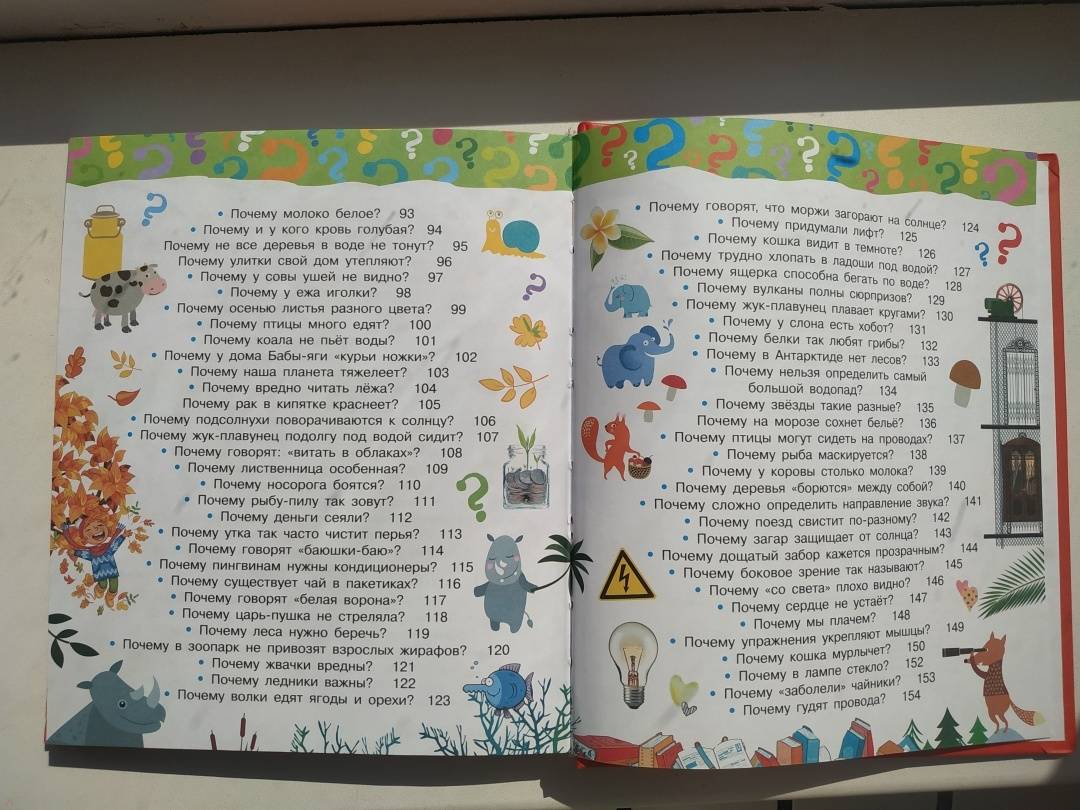 • Почему молоко белое? 93
• Почему и у кого кровь голубая? 94
Почему не все деревья в воде не тонут? 95
Почему улитки свой дом утепляют? 96
• Почему у совы ушей не видно? 97
• Почему у ежа иголки? 98
• Почему осенью листья разного цвета? 99
• Почему птицы много едят? 100
• Почему коала не пьёт воды? 101
• Почему у дома Бабы-яги «курьи ножки»? 102
• Почему наша планета тяжелеет? 103
• Почему вредно читать лёжа? 104
Почему рак в кипятке краснеет? 105
• Почему подсолнухи поворачиваются к солнцу? 106
• Почему жук-плавунец подолгу под водой сидит? 107
• Почему говорят: «витать в облаках»? 108
• Почему лиственница особенная? 109
• Почему носорога боятся? 110
• Почему рыбу-пилу так зовут? 111
• Почему деньги сеяли? 112
• Почему утка так часто чистит перья? 113
• Почему говорят «баюшки-баю»? 114
• Почему пингвинам нужны кондиционеры? 115
• Почему существует чай в пакетиках? 116
• Почему говорят «белая ворона»? 117
• Почему царь-пушка не стреляла? 118
• Почему леса нужно беречь? 119
• Почему в зоопарк не привозят взрослых жирафов? 120
• Почему жвачки вредны? 121
• Почему ледники важны? 122
• Почему волки едят ягоды и орехи? 123
• Почему говорят, что моржи загорают на солнце? 124
• Почему придумали лифт? 125
• Почему кошка видит в темноте? 126
• Почему трудно хлопать в ладоши под водой? 127
• Почему ящерка способна бегать по воде? 128
• Почему вулканы полны сюрпризов? 129
• Почему жук-плавунец плавает кругами? 130
• Почему у слона есть хобот? 131
• Почему белки так любят грибы? 132
• Почему в Антарктиде нет лесов? 133
• Почему нельзя определить самый
большой водопад? 134
• Почему звёзды такие разные? 135
• Почему на морозе сохнет бельё? 136
• Почему птицы могут сидеть на проводах? 137
• Почему рыба маскируется? 138
• Почему у коровы столько молока? 139
• Почему деревья «борются» между собой? 140
• Почему сложно определить направление звука? 141
• Почему поезд свистит по-разному? 142
• Почему загар защищает от солнца? 143
• Почему дощатый забор кажется прозрачным? 144
• Почему боковое зрение так называют? 145
• Почему «со света» плохо видно? 146
• Почему сердце не устаёт? 147
• Почему мы плачем? 148
• Почему упражнения укрепляют мышцы? 149
• Почему кошка мурлычет? 150
• Почему в лампе стекло? 152
• Почему «заболели» чайники? 153
• Почему гудят провода? 154